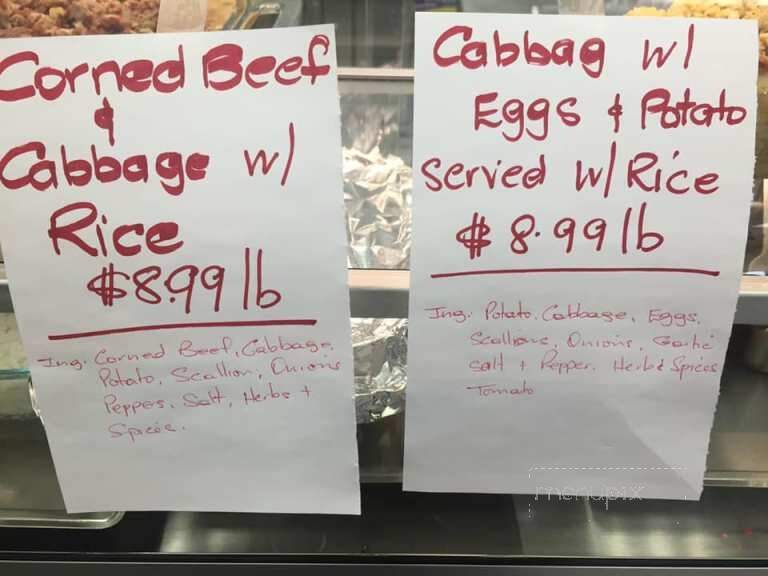 Corned Beef
&
Cabbage w/
Rice
$8.99 lb
Ing: Corned Beef, Cabbage,
Potato, Scallion, Onions
Peppes, Salt, Herbs +
Spices.
Cabbag w/
Eggs & Potato
Served w/ Rice
$ 8.99 lb
Ing: Potato. Cabbage, Eggs,
Scallions, Onions, Garlic
Salt + Pepper, Herb & Spices
Tomato
menupix